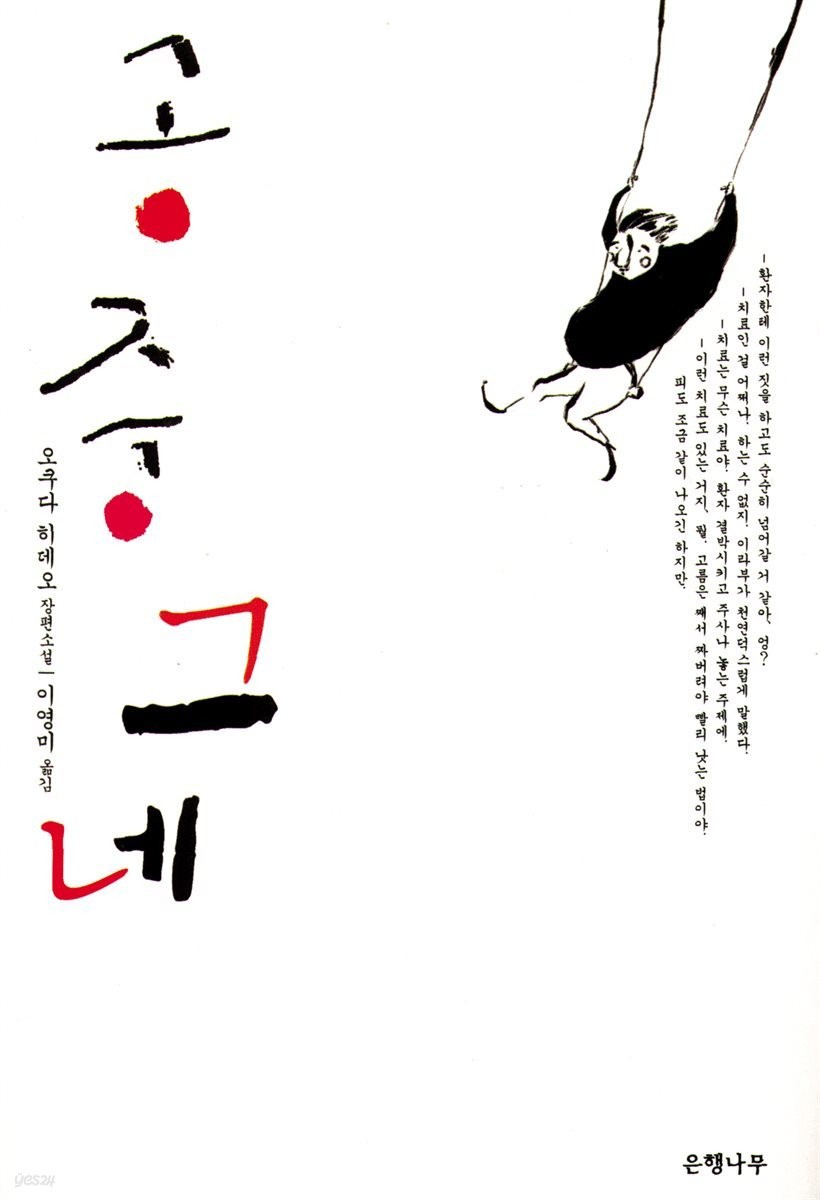 공중그네
오쿠다 히데오 장편소설 | 이영미 옮김
-환자한테 이런 짓을 하고도 순순히 넘어갈 거 같아, 엉?
-치료인 걸 어쩌나. 하는 수 없지. 이라부가 천연덕스럽게 말했다.
-치료는 무슨 치료야. 환자 결박시키고 주사나 놓는 주제에.
-이런 치료도 있는 거지, 뭘. 고름은 째서 짜버려야 빨리 낫는 법이야.
피도 조금 같이 나오긴 하지만.
은행나무
yes24